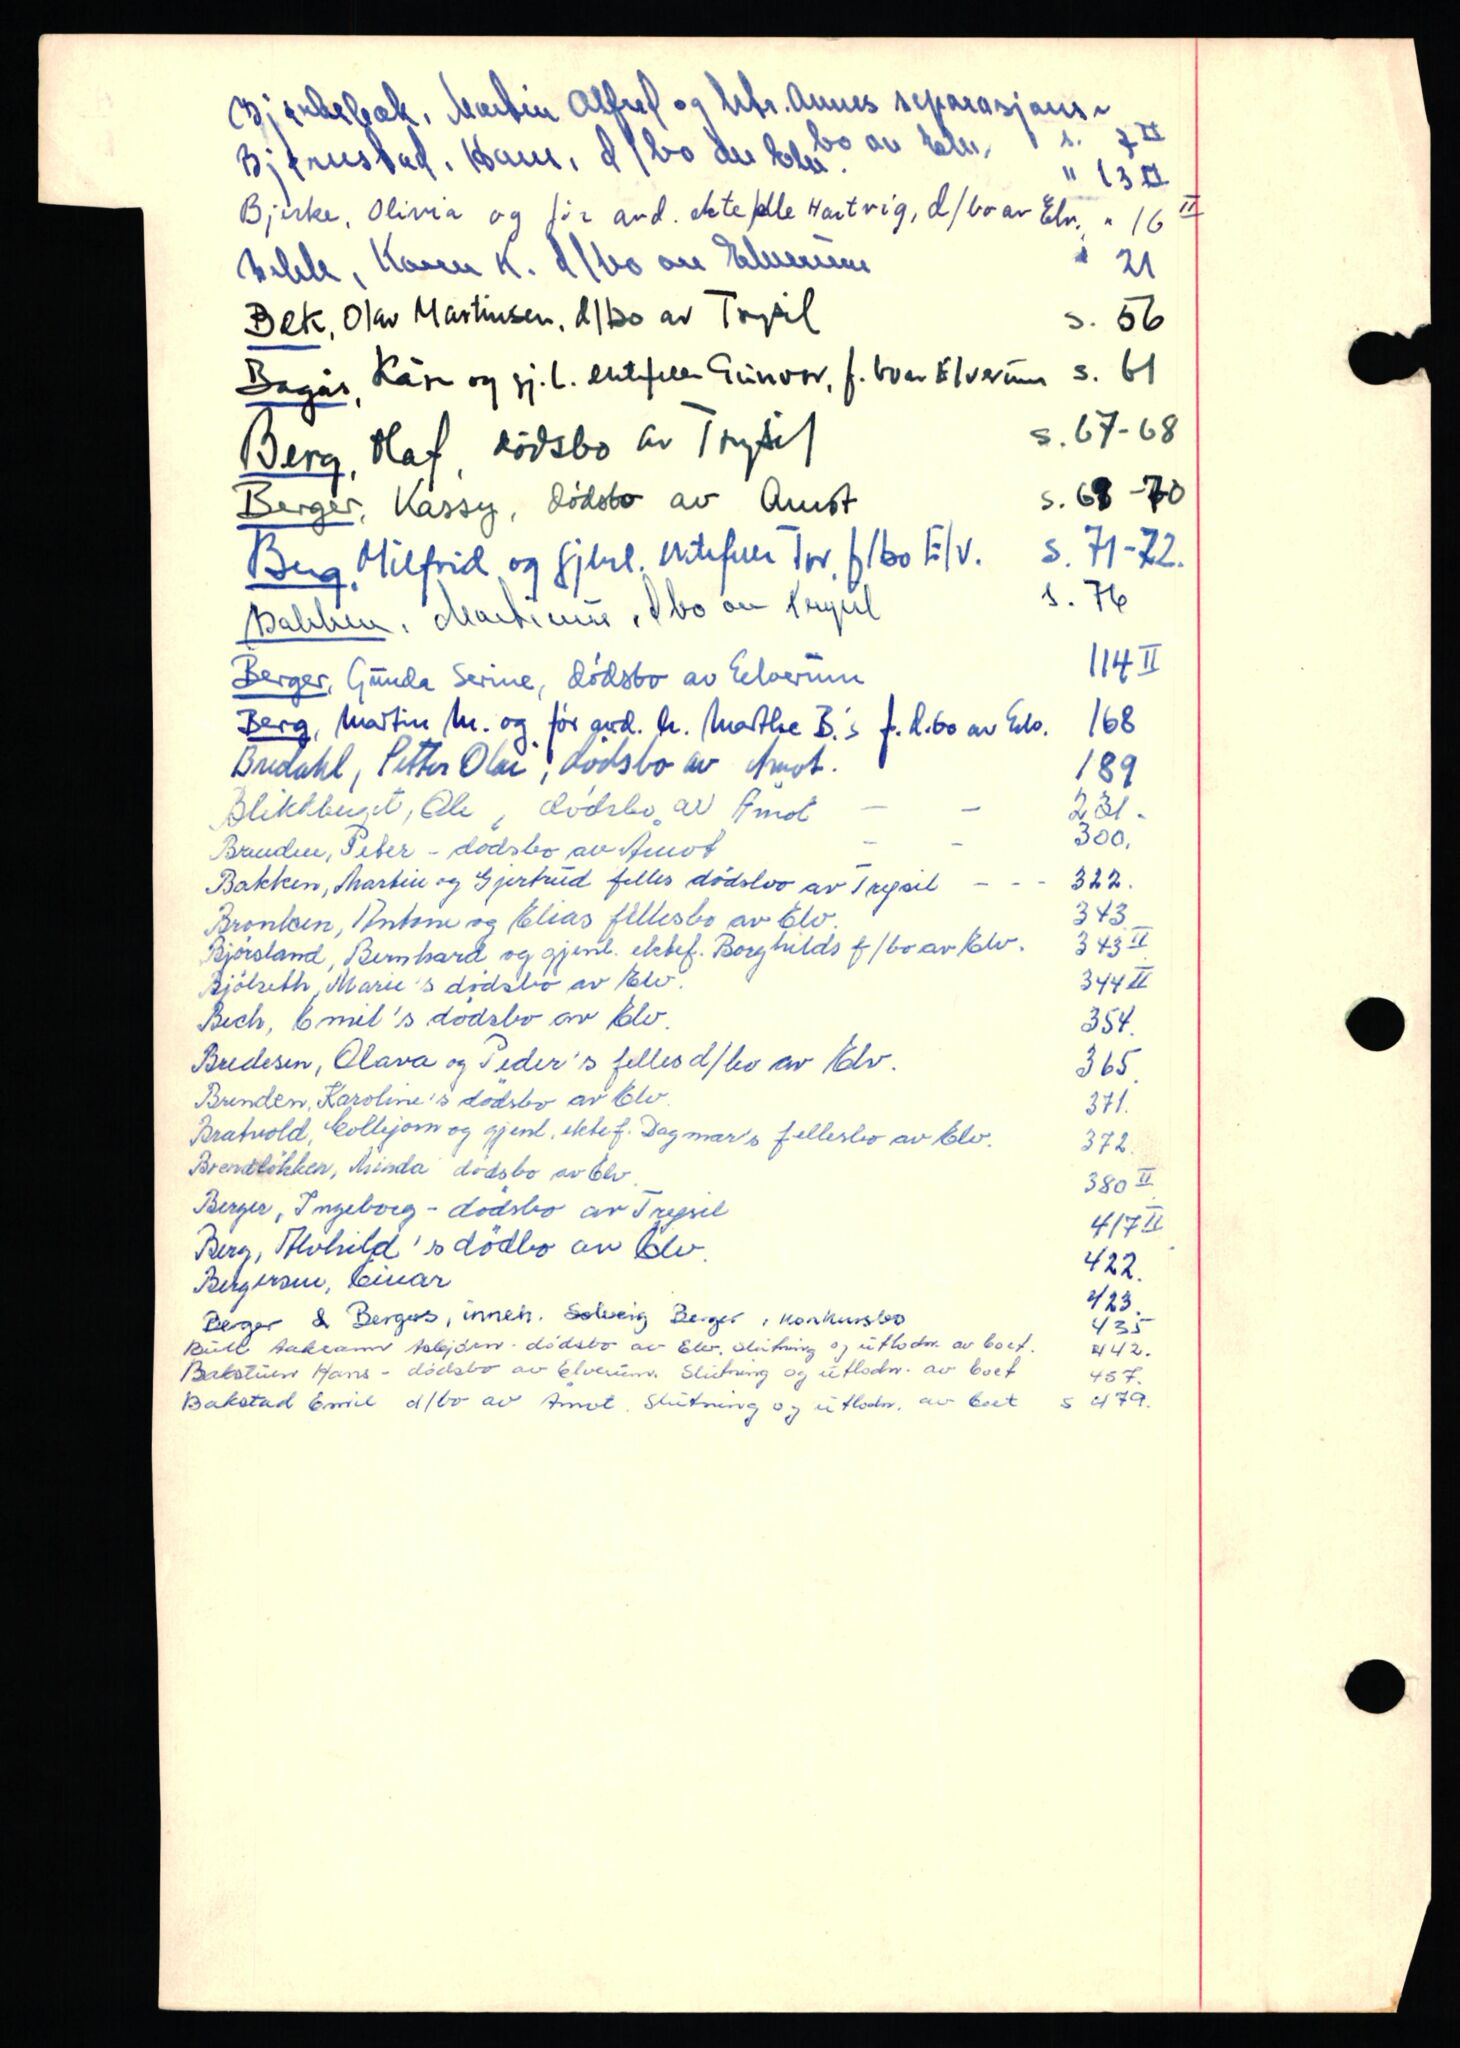 Bjerkebæk, Martin Alfred og htr. Annes separasjons-
bo av Elv. s. 7 II
Bjørnstad, Hans, d/bo av Elv. " 13 II
Bjerke, Olivia og før avd. ektefelle Hartvig, d/bo av Elv. " 16 II
Bekk, Karen K. d/bo av Elverum " 21
Bek, Olav Martinsen, d/bo av Trysil s. 56
Bagås, Kåre og gj.l. ektefelle Gunvor, f. bo av Elverum s. 61
Berg, Olaf, dødsbo av Trysil s. 67-68
Berger, Kassy, dødsbo av Åmot s. 68-70
Berg, Milfrid og gjenl. ektefelle Tor, f/bo Elv. s. 71-72.
Bakken, Martinus, d bo av Trysil s. 76
Berger, Gunda Serine, dødsbo av Elverum 114 II
Berg, Martin M. og før avd. h. Marthe B.'s f.d.bo av Elv. 168
Bredahl, Petter Olai, dødsbo av Åmot. 189
Blikkberget, Ole, dødsbo av Åmot — — 231.
Brenden, Peter - dødsbo av Åmot - - 300.
Bakken, Martin og Gjertrud felles dødsbo av Trysil - - - 322.
Bronken, Antone og Elias fellesbo av Elv. 343
Bjørsland, Bernhard og gjenl. ektef. Borghilds f/bo av Elv. 343 II
Bjølseth, Marie's dødsbo av Elv. 344 II
Bech, Emil's dødsbo av Elv. 354.
Bredesen, Olava og Peder's felles d/bo av Elv. 365.
Brenden, Karoline's dødsbo av Elv. 371.
Bratvold, og gjenl. ektef. Dagmar's fellesbo av Elv. 372.
Brendløkken, Minda dødsbo av Elv. 380 II
Berger, Ingeborg - dødsbo av Trysil 417 II
Berg, Alvhild's dødbo av Elv. 422.
Bergersen, Einar 423.
Berger & Bergers, inneh. Solveig Berger, konkursbo 435
Bull Aakrann Asbjørn - dødsbo av Elv. Slutning og utlodn. av boet. 442.
Bakstuen Hans - dødsbo av Elverum. Slutning og utlodn. av boet 457.
Bakstad Emil d/bo av Åmot. Slutning og utlodn. av boet s 479.